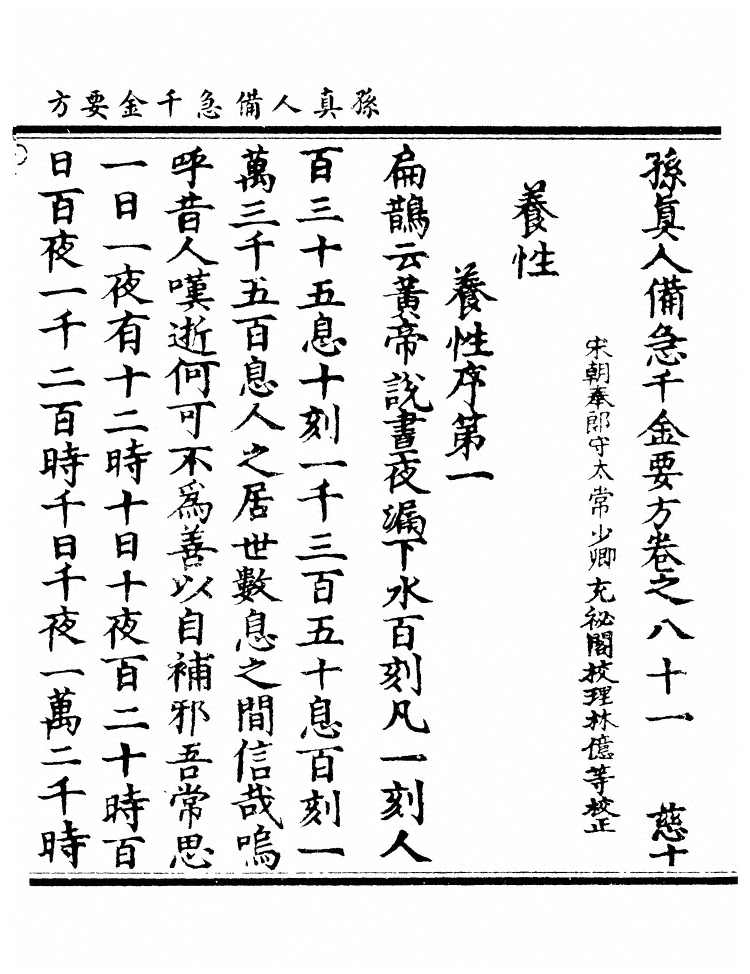 孫真人備急千金要方
孫真人備急千金要方卷之八十一 慈十
宋朝奉郎守太常少卿充祕閣挍理林億等校正
養性
養性序第一
扁鵲云黃帝說晝夜漏下水百刻凡一刻人
百三十五息十刻一千三百五十息百刻一
萬三千五百息人之居世數息之間信哉嗚
呼昔人嘆逝何可不為善以自補邪吾常思
一日一夜有十二時十日十夜百二十時百
日百夜一千二百時千日千夜一萬二千時